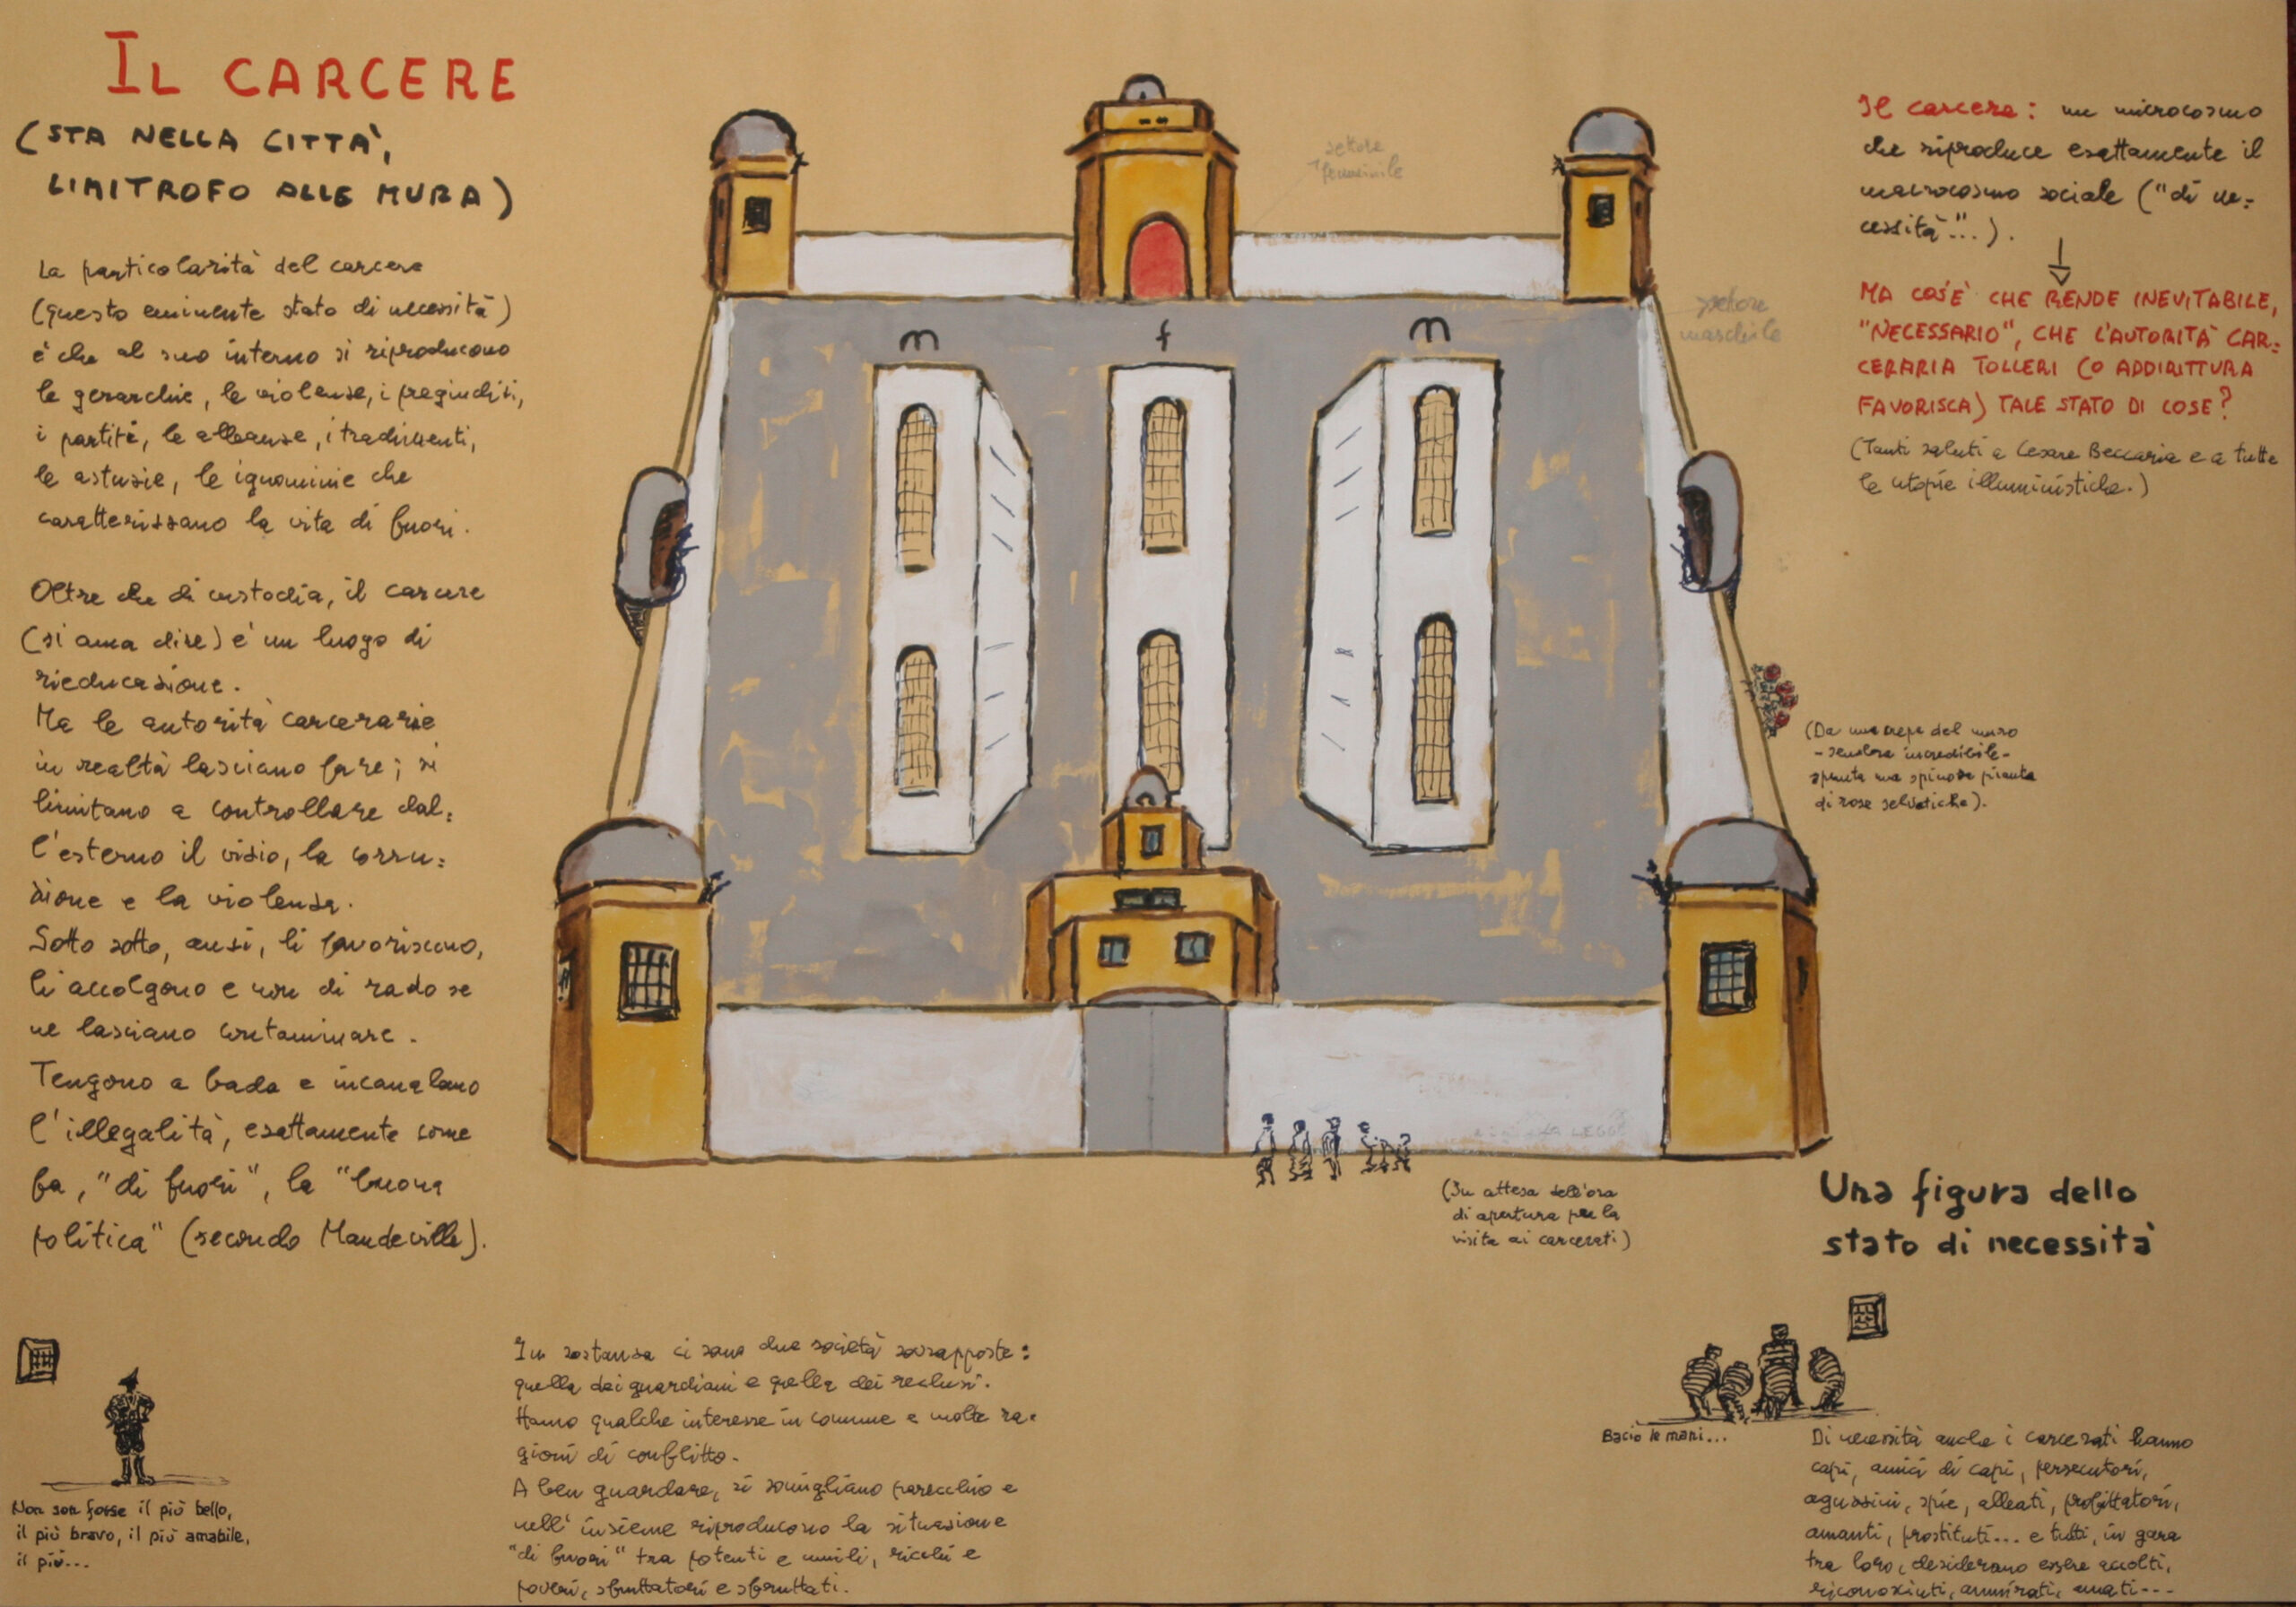 IL CARCERE
(STA NELLA CITTÀ,
LIMITROFO ALLE MURA)
La particolarità del carcere
(questo eminente stato di necessità)
è che al suo interno si riproducono
le gerarchie, le violenze, i pregiudizi,
i partiti, le alleanze, i tradimenti,
le astuzie, le ignominie che
caratterizzano la vita di fuori.
Oltre che di custodia, il carcere
(si ama dire) è un luogo di
rieducazione.
Ma le autorità carcerarie
in realtà lasciano fare; si
limitano a controllare dal=
l'esterno il vizio, la corru=
zione e la violenza.
Sotto sotto, anzi, li favoriscono,
li accolgono e non di rado se
ne lasciano contaminare.
Tengono a bada e incanalano
l'illegalità, esattamente come
fa, "di fuori", la "buona
politica" (secondo Mandeville).
Non son forse il più bello,
il più bravo, il più amabile,
il più...
In sostanza ci sono due società sovrapposte:
quella dei guardiani e quella dei reclusi.
Hanno qualche interesse in comune e molte ra=
gioni di conflitto.
A ben guardare, si somigliano parecchio e
nell'insieme riproducono la situazione
"di fuori" tra potenti e umili, ricchi e
poveri, sfruttatori e sfruttati.
settore
femminile
settore
maschile
m
f
m
LEGGE
(In attesa dell'ora
di apertura per la
visita ai carcerati)
Il carcere: un microcosmo
che riproduce esattamente il
macrocosmo sociale ("di ne=
cessità"...).
MA COS'È CHE RENDE INEVITABILE,
"NECESSARIO", CHE L'AUTORITÀ CAR=
CERARIA TOLLERI (O ADDIRITTURA
FAVORISCA) TALE STATO DI COSE?
(Tanti saluti a Cesare Beccaria e a tutte
le utopie illuministiche.)
(Da una crepa del muro
- sembra incredibile -
spunta una spinosa pianta
di rose selvatiche).
Una figura dello
stato di necessità
Bacio le mani...
Di necessità anche i carcerati hanno
capi, amici di capi, persecutori,
aguzzini, spie, alleati, profittatori,
amanti, prostituti... e tutti, in gara
tra loro, desiderano essere accolti,
riconosciuti, ammirati, amati...